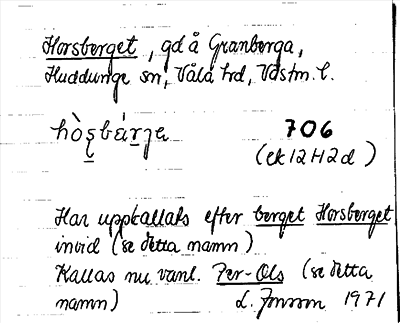 Horsberget, gd å Granberga,
Huddunge sn, Våla hd, Västm. l.
hòʂbárja 706
(ek 12H2d)
Har uppkallats efter berget Horsberget
invid (se detta namn)
Kallas nu vanl. Per-Ols (se detta
namn) L. Jonsson 1971